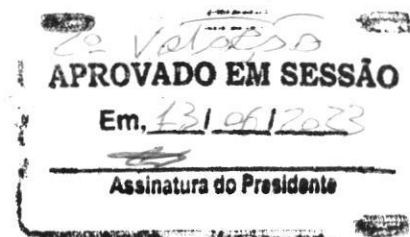 2ª Votação
APROVADO EM SESSÃO
Em, 13/06/2023
Assinatura do Presidente